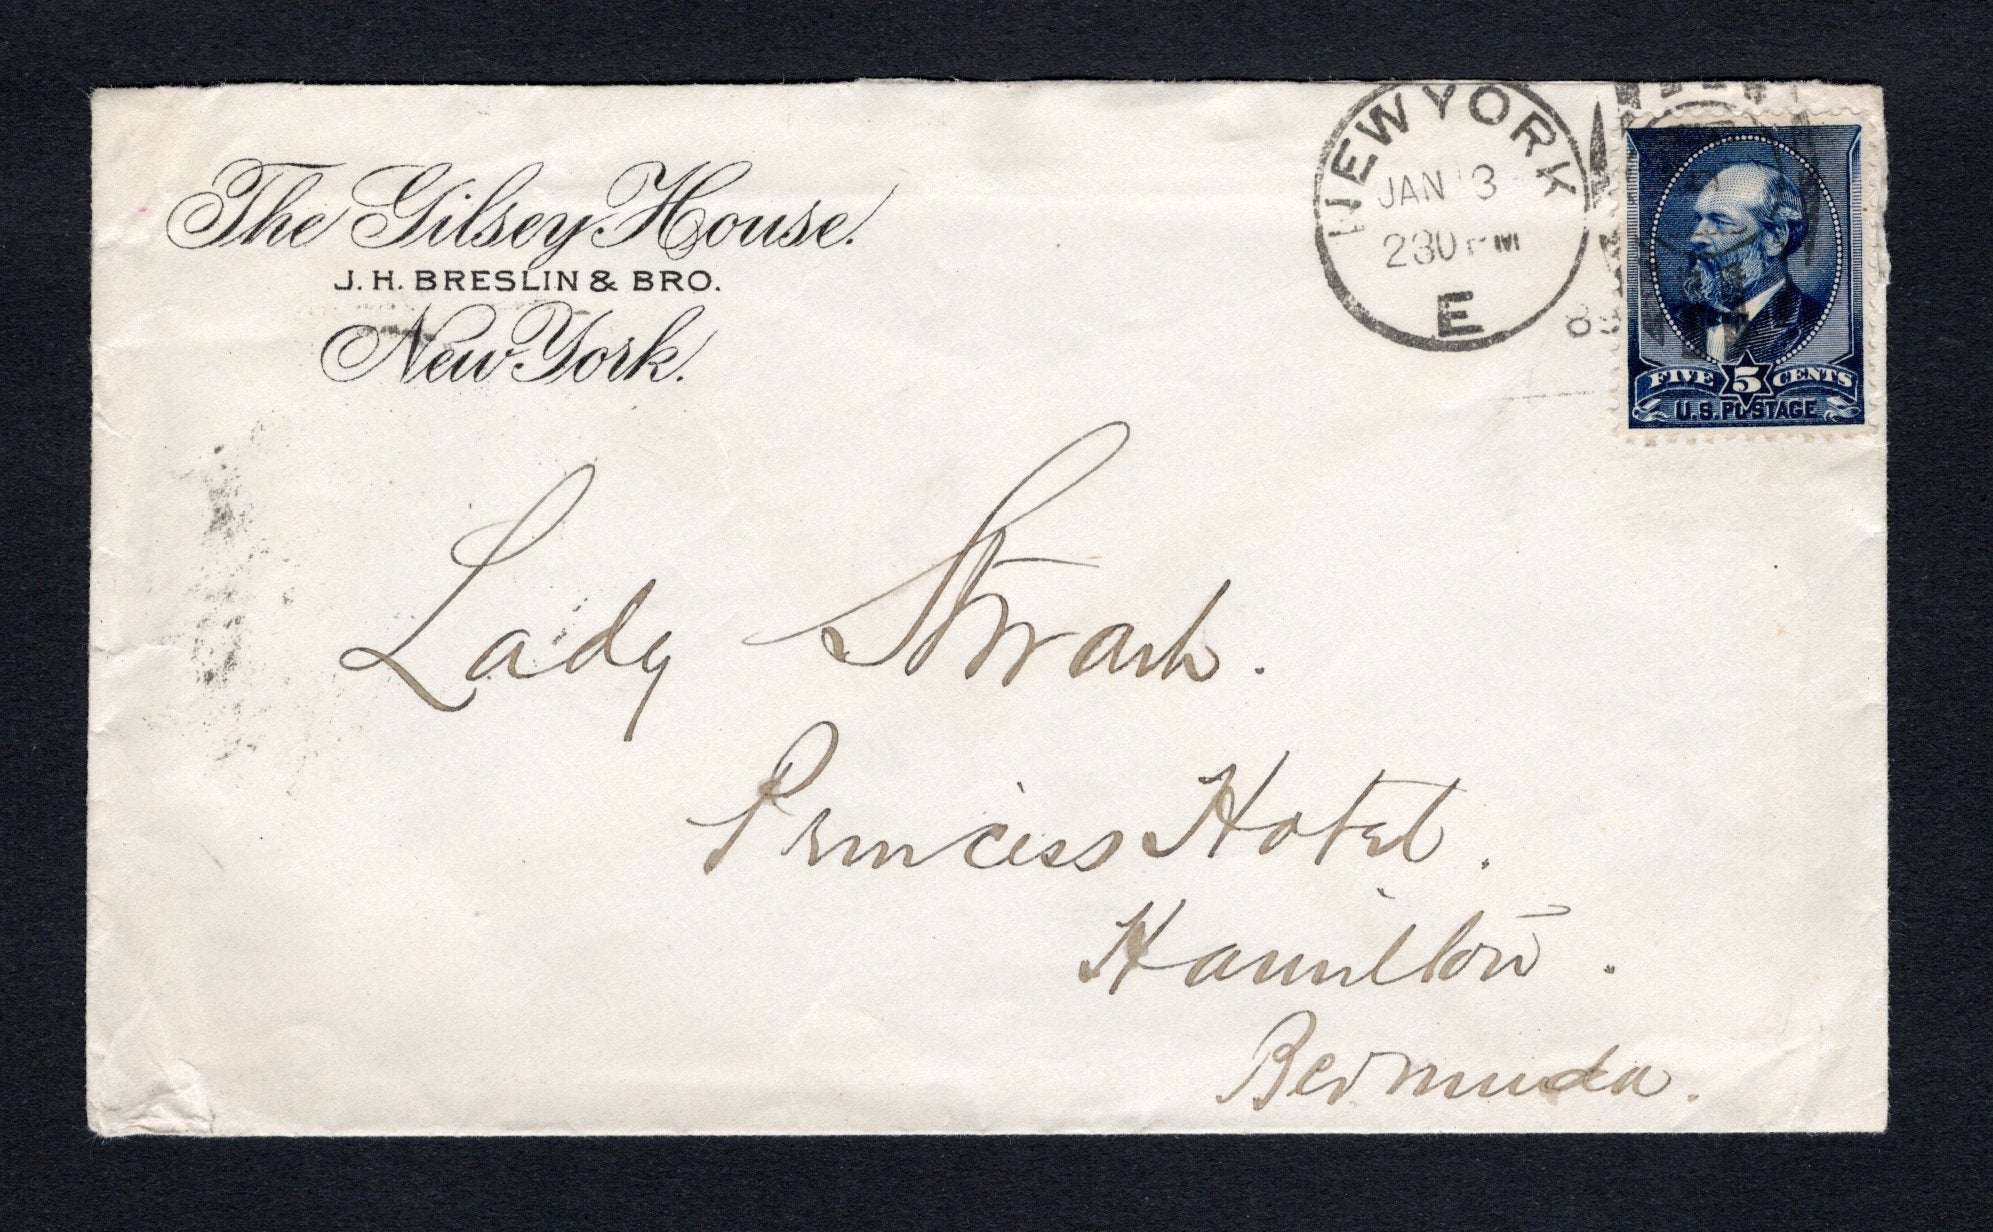 The Gilsey House.
J. H. BRESLIN & BRO.
New York.
NEW YORK
JAN 3
230 PM
E
FIVE 5 CENTS
U.S. POSTAGE
Lady
Princess Hotel.
Hamilton.
Bermuda.